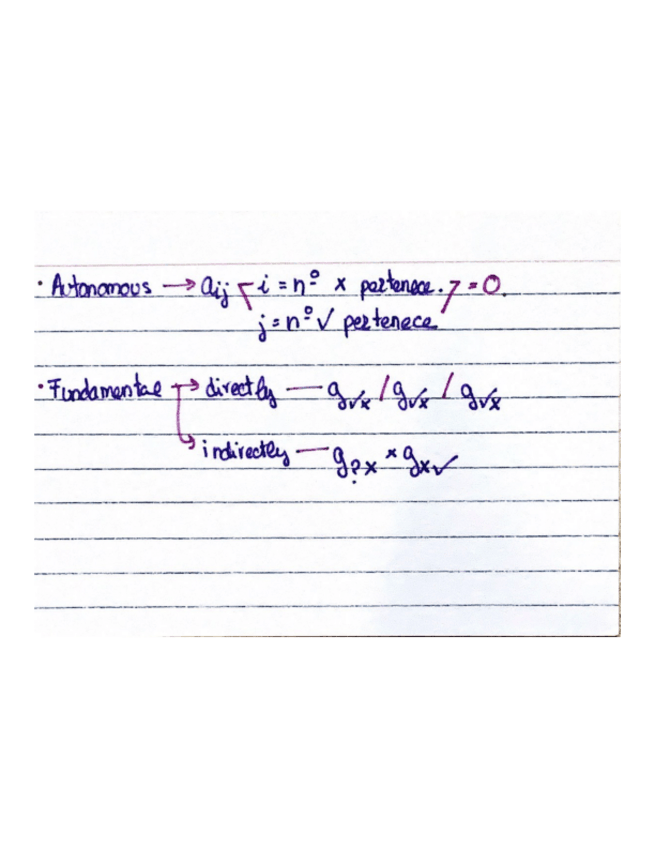 · Autonomous → aij i = nº x pertenece. = 0.
j = nº ✓ pertenece
· Fundamental → directly — g√x / g√x / g√x
↳ indirectly — g?x * gx✓